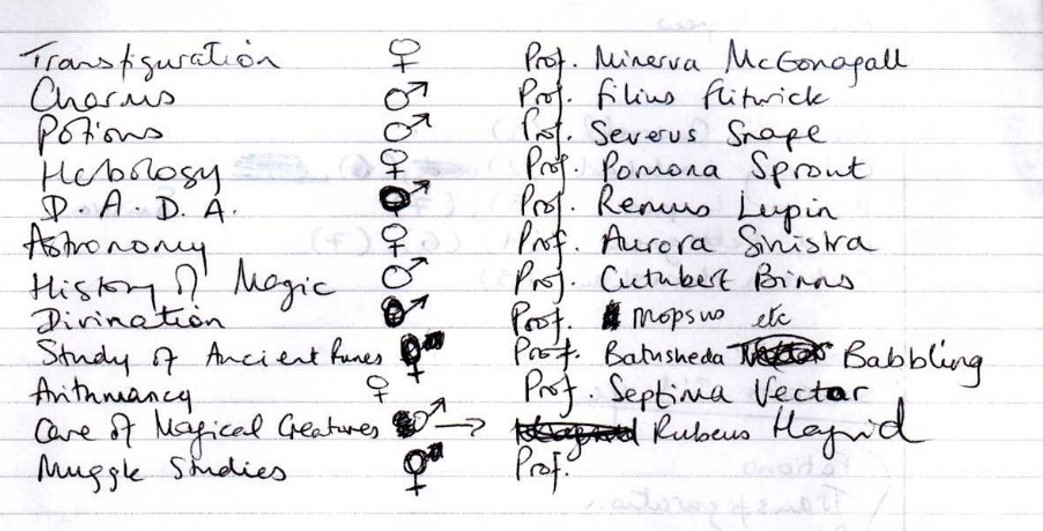 Transfiguration ♀ Prof. Minerva McGonagall
Charms ♂ Prof. Filius Flitwick
Potions ♂ Prof. Severus Snape
Hebology ♀ Prof. Pomona Sprout
D. A. D. A. ♂ Prof. Remus Lupin
Astronomy ♀ Prof. Aurora Sinistra
History of Magic ♂ Prof. Cuthbert Binns
Divination ♂ Prof. Mopsus etc
Study of Ancient Runes ♀ Prof. Bathsheda Babbling
Arithmancy ♀ Prof. Septima Vector
Care of Magical Creatures ♂ → Rubeus Hagrid
Muggle Studies ♀ Prof.
Potions
Transfiguration